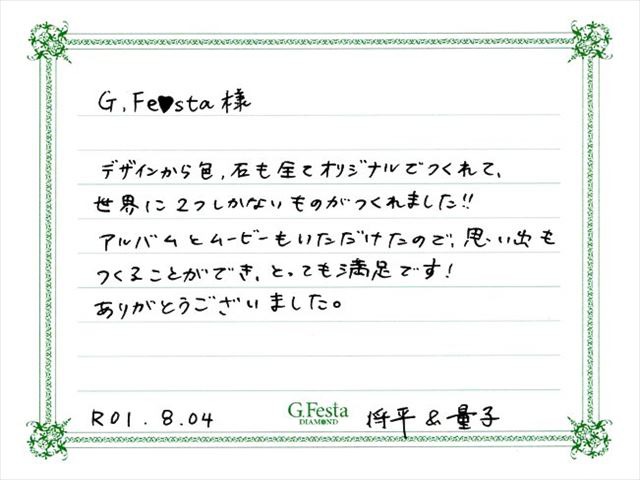 G.Fe♥sta様
デザインから色,石も全てオリジナルでつくれて、
世界に2つしかないものがつくれました!!
アルバムとムービーもいただけたので、思い出も
つくることができ、とっても満足です!
ありがとうございました。
R01.8.04
G.Festa
DIAMOND
将平&量子